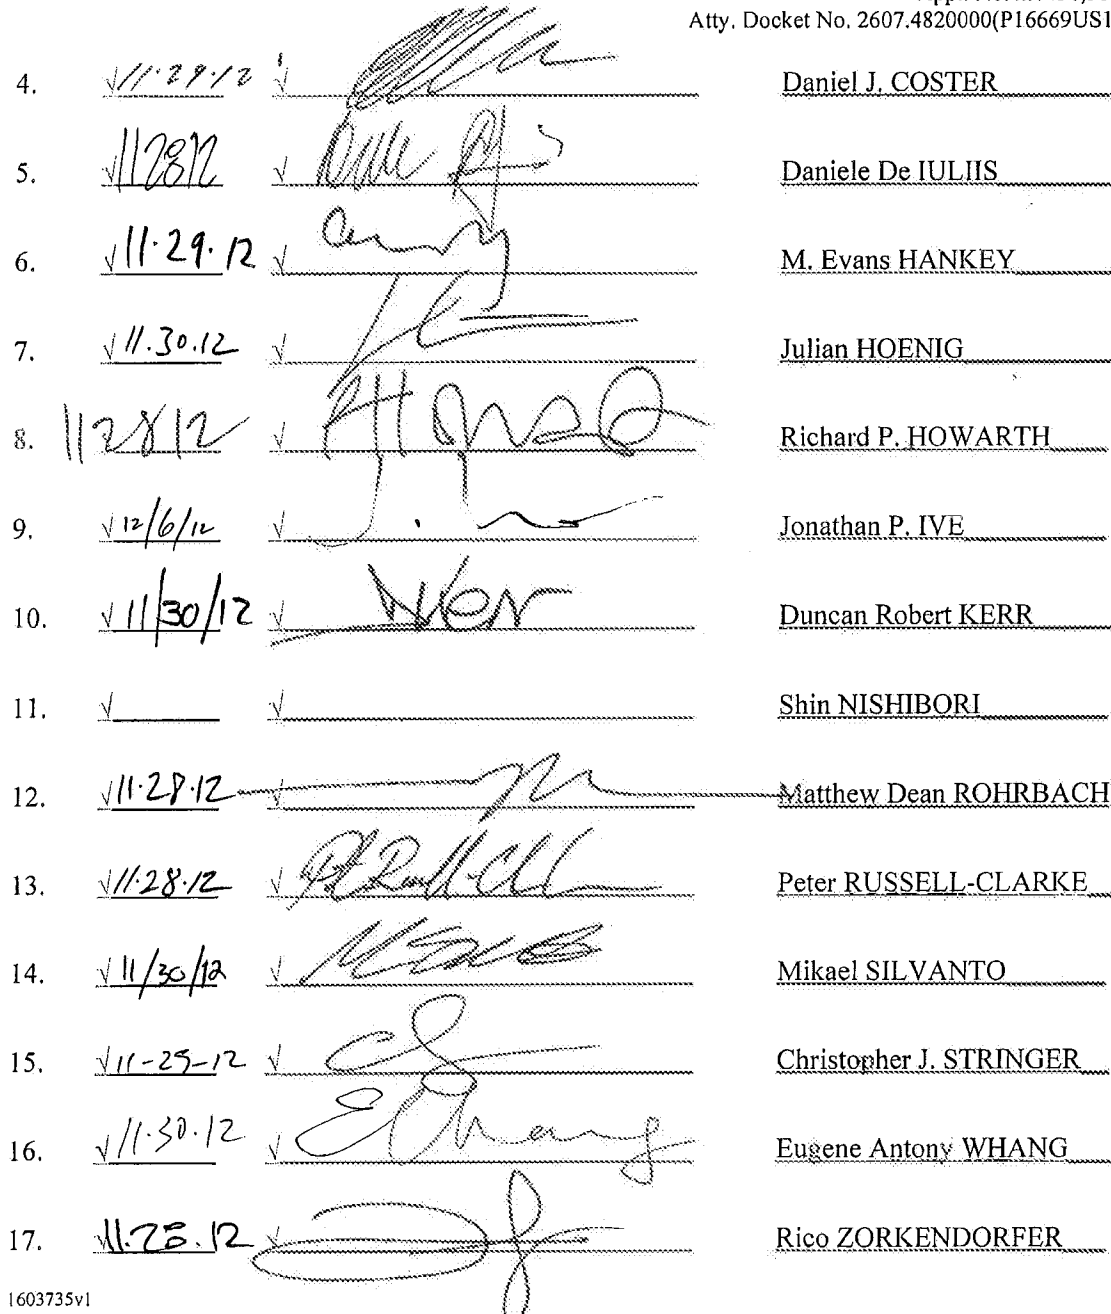 Atty. Docket No. 2607.4820000(P16669US1
4. √ 11·29·12 √ Daniel J. COSTER
5. √ 11 28 12 √ Daniele De IULIIS
6. √ 11·29·12 √ M. Evans HANKEY
7. √ 11.30.12 √ Julian HOENIG
8. 11 28 12 √ Richard P. HOWARTH
9. √ 12/6/12 √ Jonathan P. IVE
10. √ 11/30/12 √ Duncan Robert KERR
11. √ √ Shin NISHIBORI
12. √ 11·28·12 √ Matthew Dean ROHRBACH
13. √ 11·28·12 √ Peter RUSSELL-CLARKE
14. √ 11/30/12 √ Mikael SILVANTO
15. √ √ Christopher J. STRINGER
16. √ 11·30·12 √ EWhang Eugene Antony WHANG
17. √ 11.28.12 √ Rico ZORKENDORFER
1603735v1